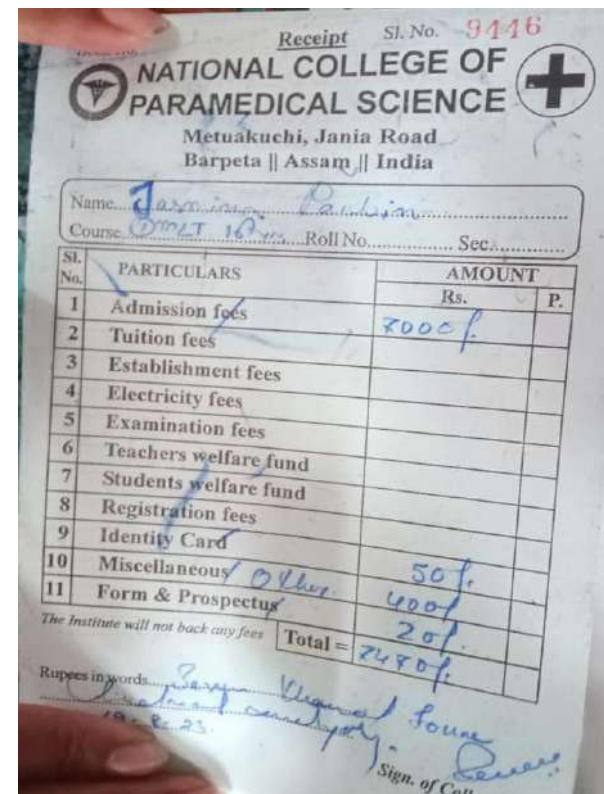 Receipt Sl. No. 9446
NATIONAL COLLEGE OF
PARAMEDICAL SCIENCE
Metuakuchi, Jania Road
Barpeta || Assam || India
Name
Course DMLT Roll No. Sec.
Sl. No. PARTICULARS AMOUNT
Rs. P.
1 Admission fees 7000/-
2 Tuition fees
3 Establishment fees
4 Electricity fees
5 Examination fees
6 Teachers welfare fund
7 Students welfare fund
8 Registration fees
9 Identity Card 50/-
10 Miscellaneous Other 400/-
11 Form & Prospectus 20/-
The Institute will not back any fees Total = 7470/-
Rupees in words Seven Thousand Four
Sign. of